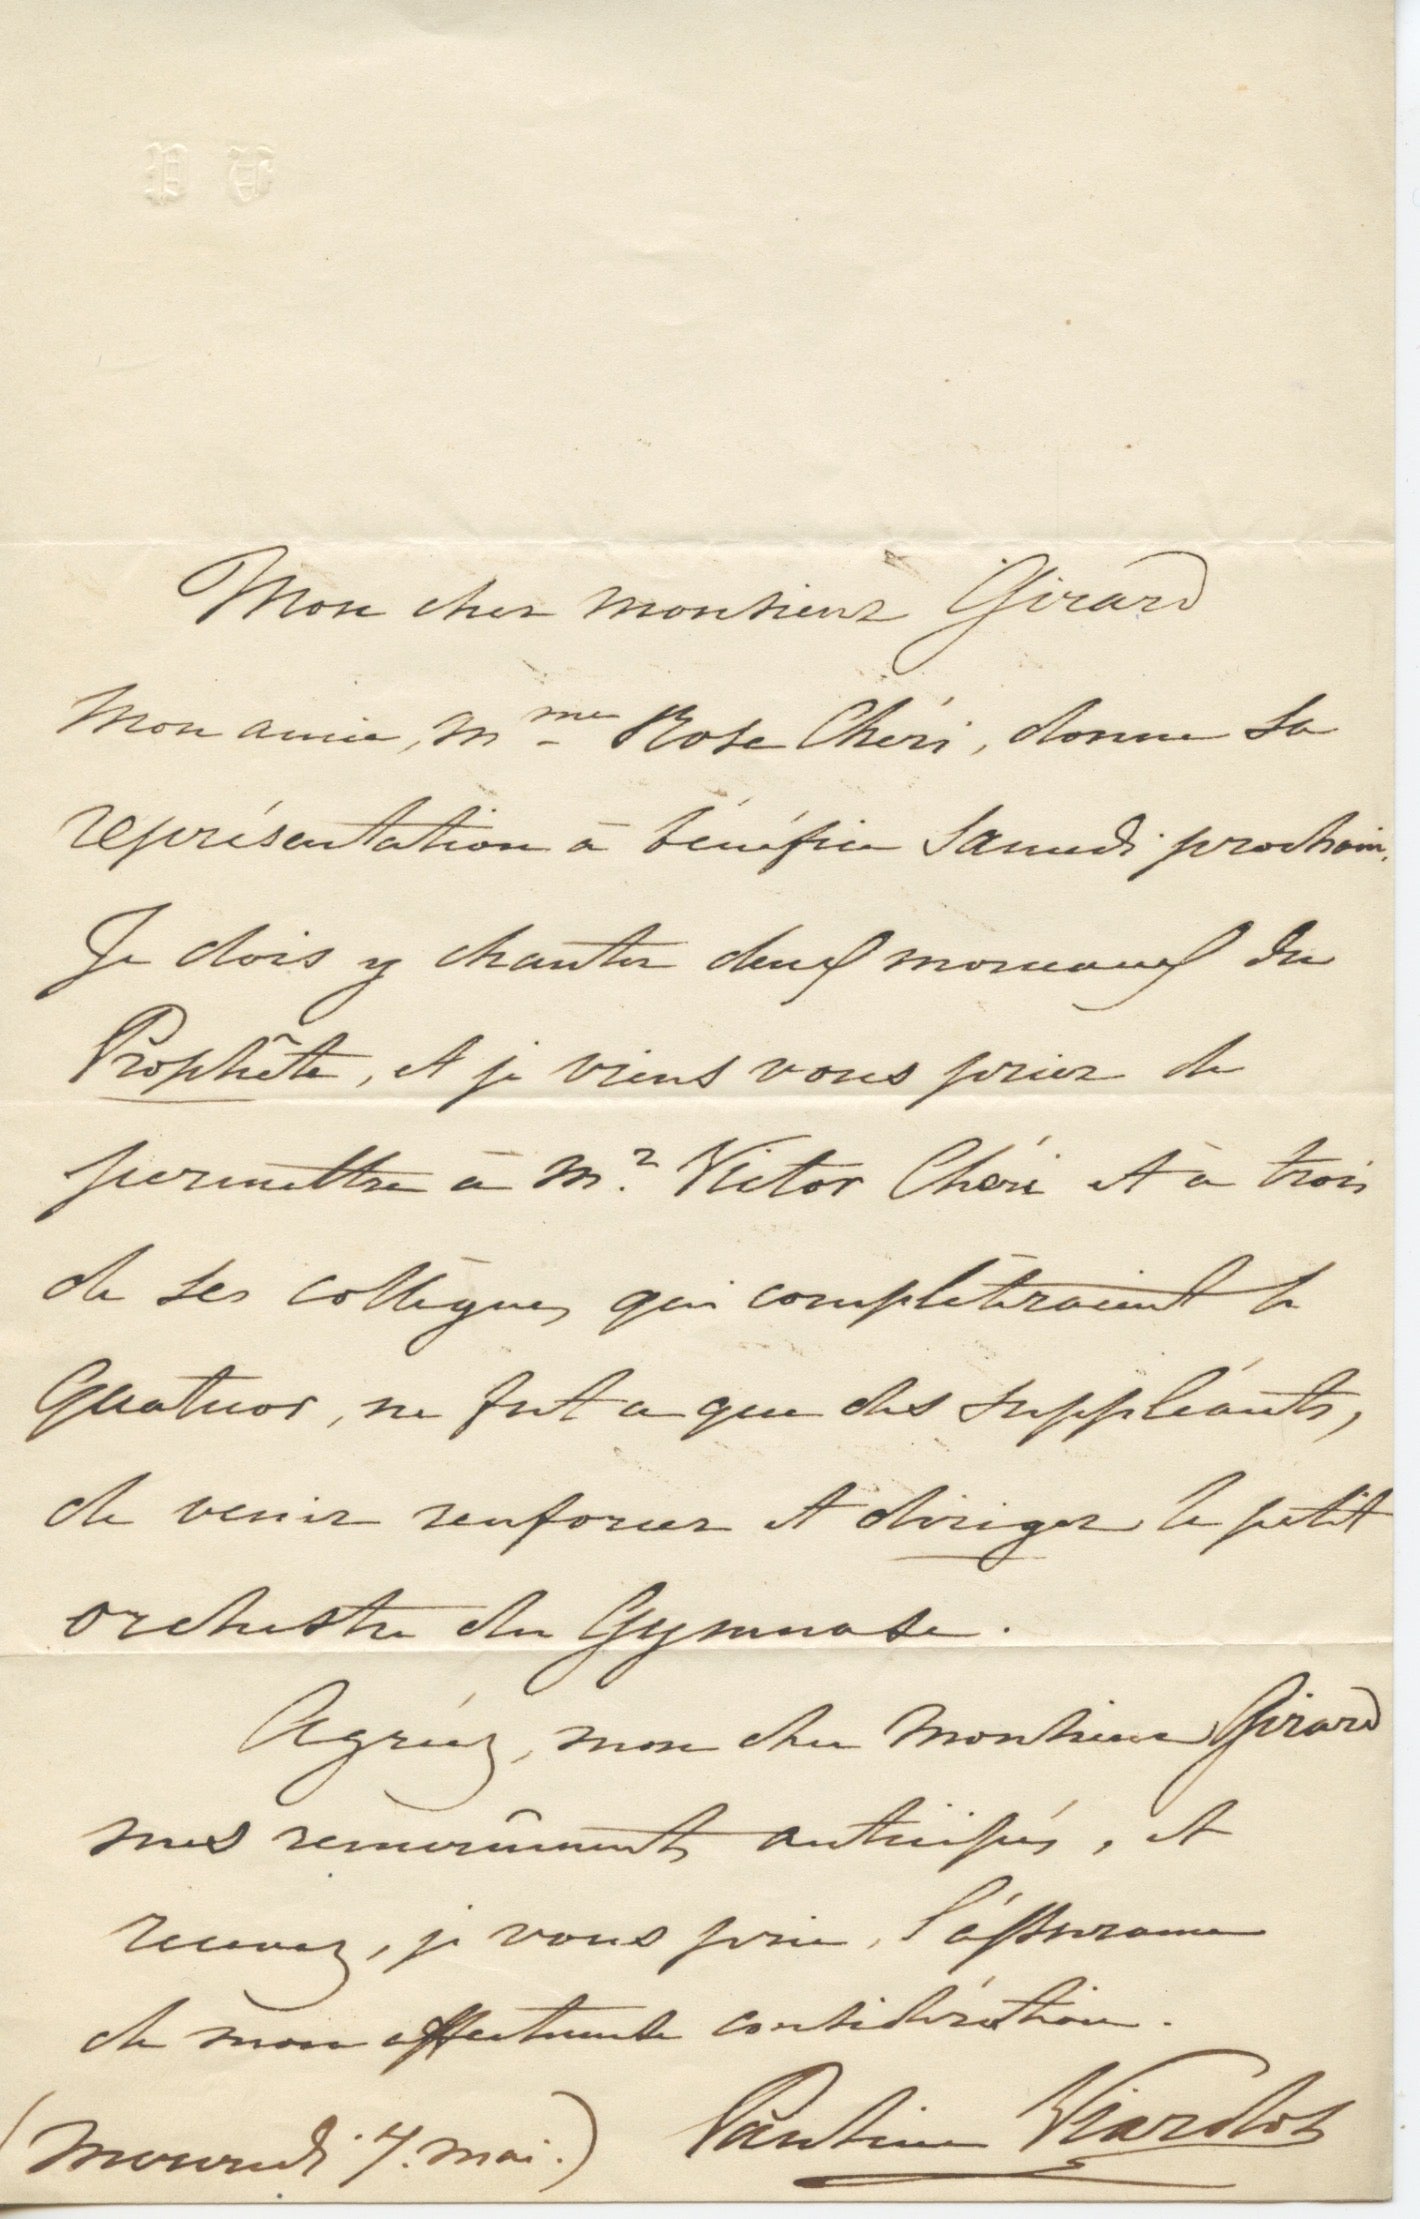 Mon cher monsieur Girard
Mon amie, Mme Rose Chéri, donne sa
représentation à bénéfice Samedi prochain.
Je dois y chanter deux morceaux du
Prophète, et je viens vous prier de
permettre à Mr. Victor Chéri et à trois
de ses collègues qui complèteraient le
Quatuor, ne fut ce que des suppléants,
de venir renforcer et diriger le petit
orchestre du Gymnase.
Agréez, mon cher Monsieur Girard
mes remercîments anticipés, et
recevez, je vous prie, l'assurance
de mon affectueuse considération.
Pauline Viardot
(Mercredi 7. mai.)